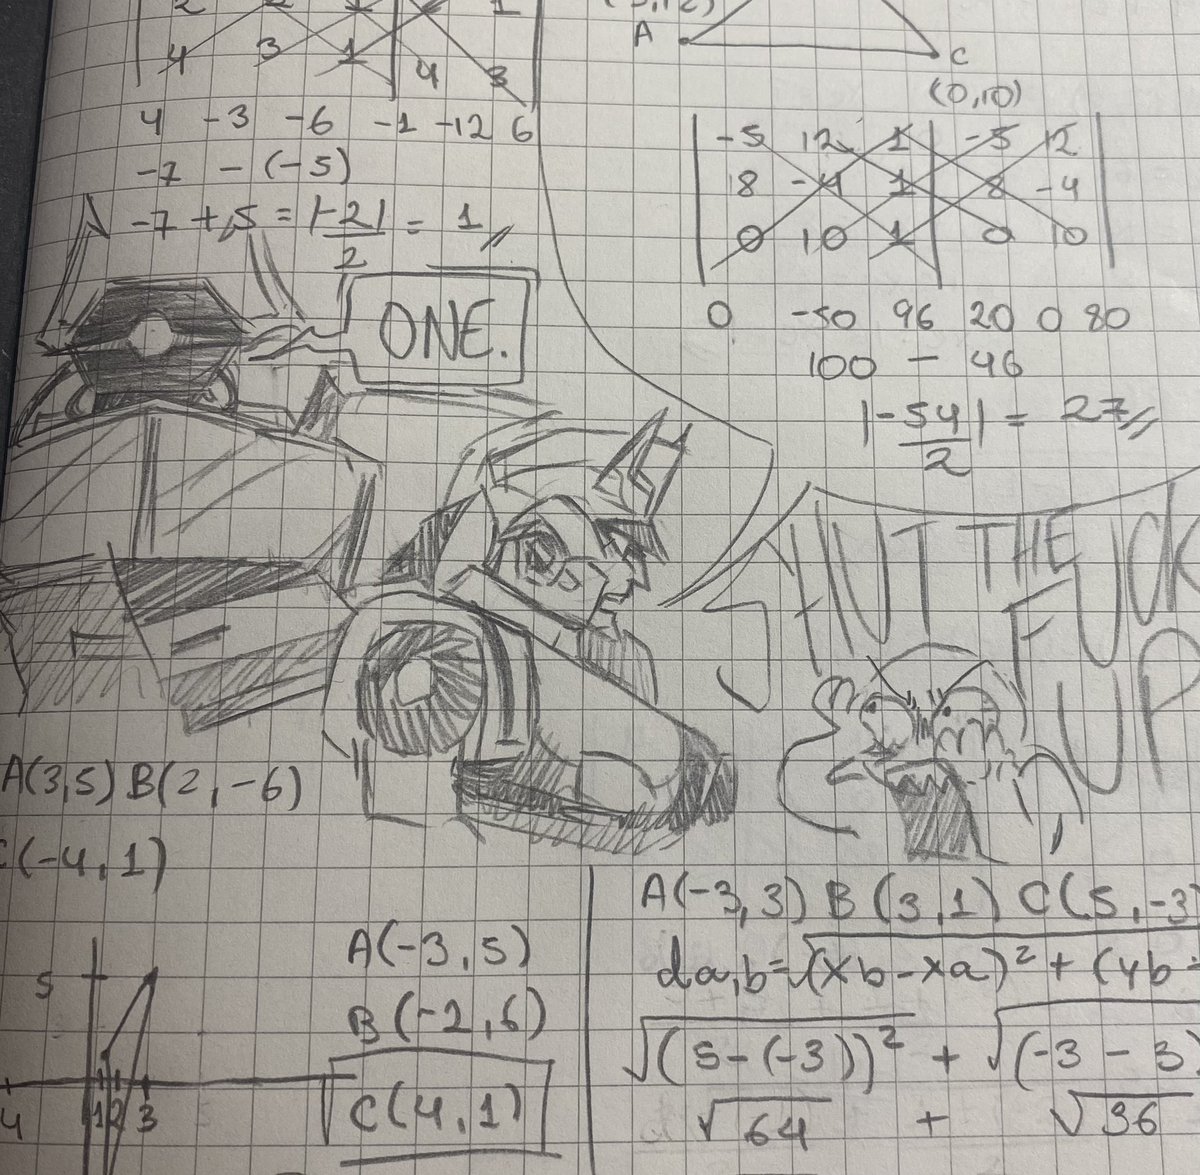 2 2 1 2 1
4 3 1 4 3
4 -3 -6 -1 -12 6
-7 - (-5)
-7 + 5 = |-2| = 1 //
2
ONE.
A
C
(0,10)
-5 12 1 -5 12
8 -4 1 8 -4
0 10 1 0 10
0 -50 96 20 0 80
100 - 46
|-54| = 27 //
2
SHUT THE FUCK
FUP
UP
A(3,5) B(2,-6)
C(-4,1)
5
4 1 2 3
A(-3,5)
B(-2,6)
C(4,1)
A(-3,3) B(3,1) C(5,-3)
da,b=√(xb-xa)² + (yb-
√(5-(-3))² + √(-3-3)
√64 + √36